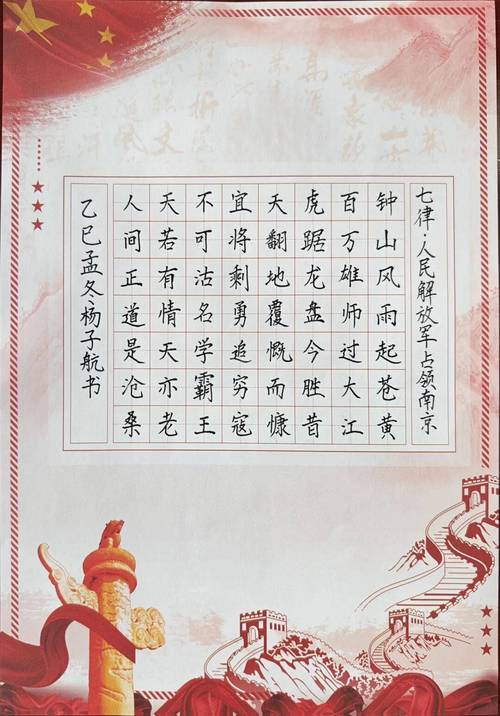 七律·人民解放军占领南京
钟山风雨起苍黄
百万雄师过大江
虎踞龙盘今胜昔
天翻地覆慨而慷
宜将剩勇追穷寇
不可沽名学霸王
天若有情天亦老
人间正道是沧桑
乙巳孟冬杨子航书